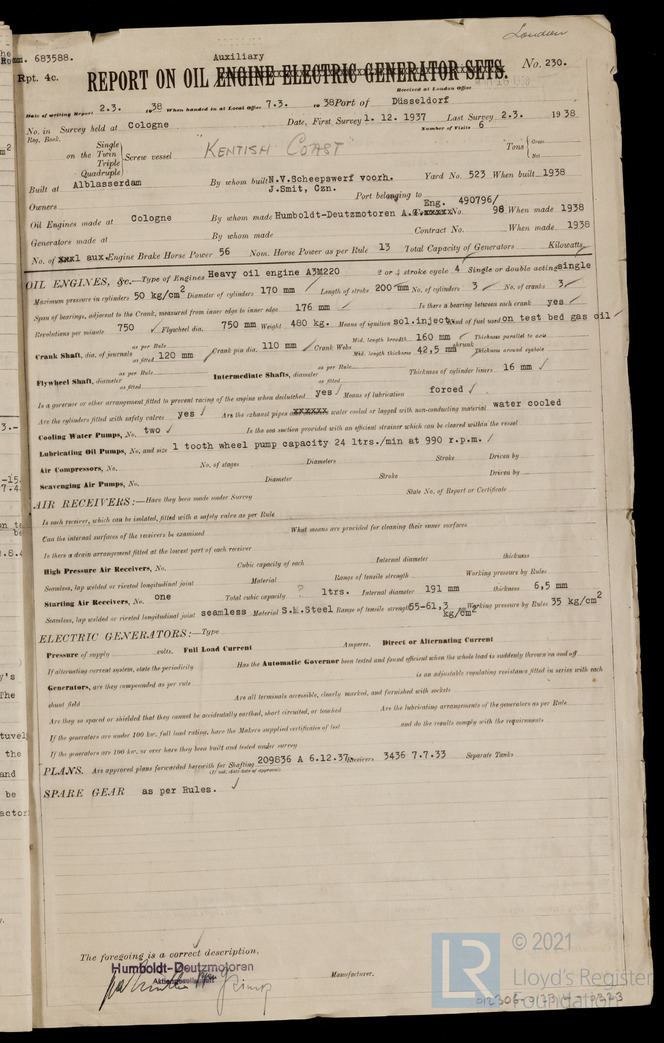 London
Rom. 683588.
Auxiliary
Rpt. 4c.
REPORT ON OIL ENGINE ELECTRIC GENERATOR SETS.
No. 230.
Received at London Office
Date of writing Report 2.3. 1938 When handed in at Local Office 7.3. 1938 Port of Düsseldorf
No. in Survey held at Cologne Date, First Survey 1. 12. 1937 Last Survey 2.3. 1938
Reg. Book. Number of Visits 6
Single
on the Twin
Triple
Quadruple
Screw vessel "KENTISH COAST" Tons Gross
Net
Built at Alblasserdam By whom built N.V.Scheepswerf voorh. Yard No. 523 When built 1938
J.Smit, Czn.
Owners Port belonging to
Oil Engines made at Cologne By whom made Humboldt-Deutzmotoren A.G. Eng. No. 490796/98 When made 1938
Generators made at By whom made Contract No. When made 1938
No. of xxx1 aux.Engine Brake Horse Power 56 Nom. Horse Power as per Rule 13 Total Capacity of Generators Kilowatts
OIL ENGINES, &c.—Type of Engines Heavy oil engine A3M220 2 or 4 stroke cycle 4 Single or double acting single
Maximum pressure in cylinders 50 kg/cm2 Diameter of cylinders 170 mm Length of stroke 200 mm No. of cylinders 3 No. of cranks 3
Span of bearings, adjacent to the Crank, measured from inner edge to inner edge 176 mm Is there a bearing between each crank yes
Revolutions per minute 750 Flywheel dia. 750 mm Weight 480 kg. Means of ignition sol.inject. Kind of fuel used on test bed gas oil
Crank Shaft, dia. of journals as per Rule as fitted 120 mm Crank pin dia. 110 mm Crank Webs Mid. length breadth 160 mm Mid. length thickness 42,5 mm shrunk Thickness parallel to axis Thickness around eyehole
Flywheel Shaft, diameter as per Rule as fitted Intermediate Shafts, diameter as per Rule as fitted Thickness of cylinder liners 16 mm
Is a governor or other arrangement fitted to prevent racing of the engine when declutched yes Means of lubrication forced
Are the cylinders fitted with safety valves yes Are the exhaust pipes and xxxxxx water cooled or lagged with non-conducting material water cooled
Cooling Water Pumps, No. two Is the sea suction provided with an efficient strainer which can be cleared within the vessel
Lubricating Oil Pumps, No. and size 1 tooth wheel pump capacity 24 ltrs./min at 990 r.p.m.
Air Compressors, No. No. of stages Diameters Stroke Driven by
Scavenging Air Pumps, No. Diameter Stroke Driven by
AIR RECEIVERS:—Have they been made under Survey State No. of Report or Certificate
Is each receiver, which can be isolated, fitted with a safety valve as per Rule
Can the internal surfaces of the receivers be examined What means are provided for cleaning their inner surfaces
Is there a drain arrangement fitted at the lowest part of each receiver
High Pressure Air Receivers, No. Cubic capacity of each Internal diameter thickness
Seamless, lap welded or riveted longitudinal joint Material Range of tensile strength Working pressure by Rules
Starting Air Receivers, No. one Total cubic capacity ? ltrs. Internal diameter 191 mm thickness 6,5 mm
Seamless, lap welded or riveted longitudinal joint seamless Material S.M.Steel Range of tensile strength 55-61,3 kg/cm2 Working pressure by Rules 35 kg/cm2
ELECTRIC GENERATORS:—Type
Pressure of supply volts. Full Load Current Amperes. Direct or Alternating Current
If alternating current system, state the periodicity Has the Automatic Governor been tested and found efficient when the whole load is suddenly thrown on and off
Generators, are they compounded as per rule is an adjustable regulating resistance fitted in series with each
shunt field Are all terminals accessible, clearly marked, and furnished with sockets
Are they so spaced or shielded that they cannot be accidentally earthed, short circuited, or touched Are the lubricating arrangements of the generators as per Rule
If the generators are under 100 kw. full load rating, have the Makers supplied certificates of test and do the results comply with the requirements
If the generators are 100 kw. or over have they been built and tested under survey
PLANS. Are approved plans forwarded herewith for Shafting 209836 A 6.12.37 Receivers 3436 7.7.33 Separate Tanks
(If not, state date of approval)
SPARE GEAR as per Rules.
The foregoing is a correct description,
Humboldt-Deutzmotoren
Aktiengesellschaft
Manufacturer.
LR
© 2021
Lloyd's Register
Foundation